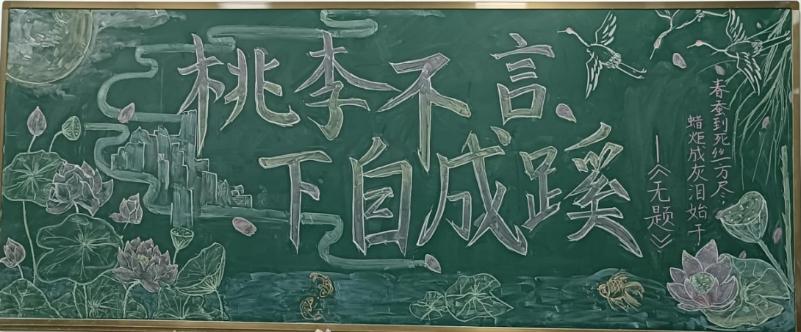 桃李不言
下自成蹊
春蚕到死丝方尽，
蜡炬成灰泪始干
—《无题》